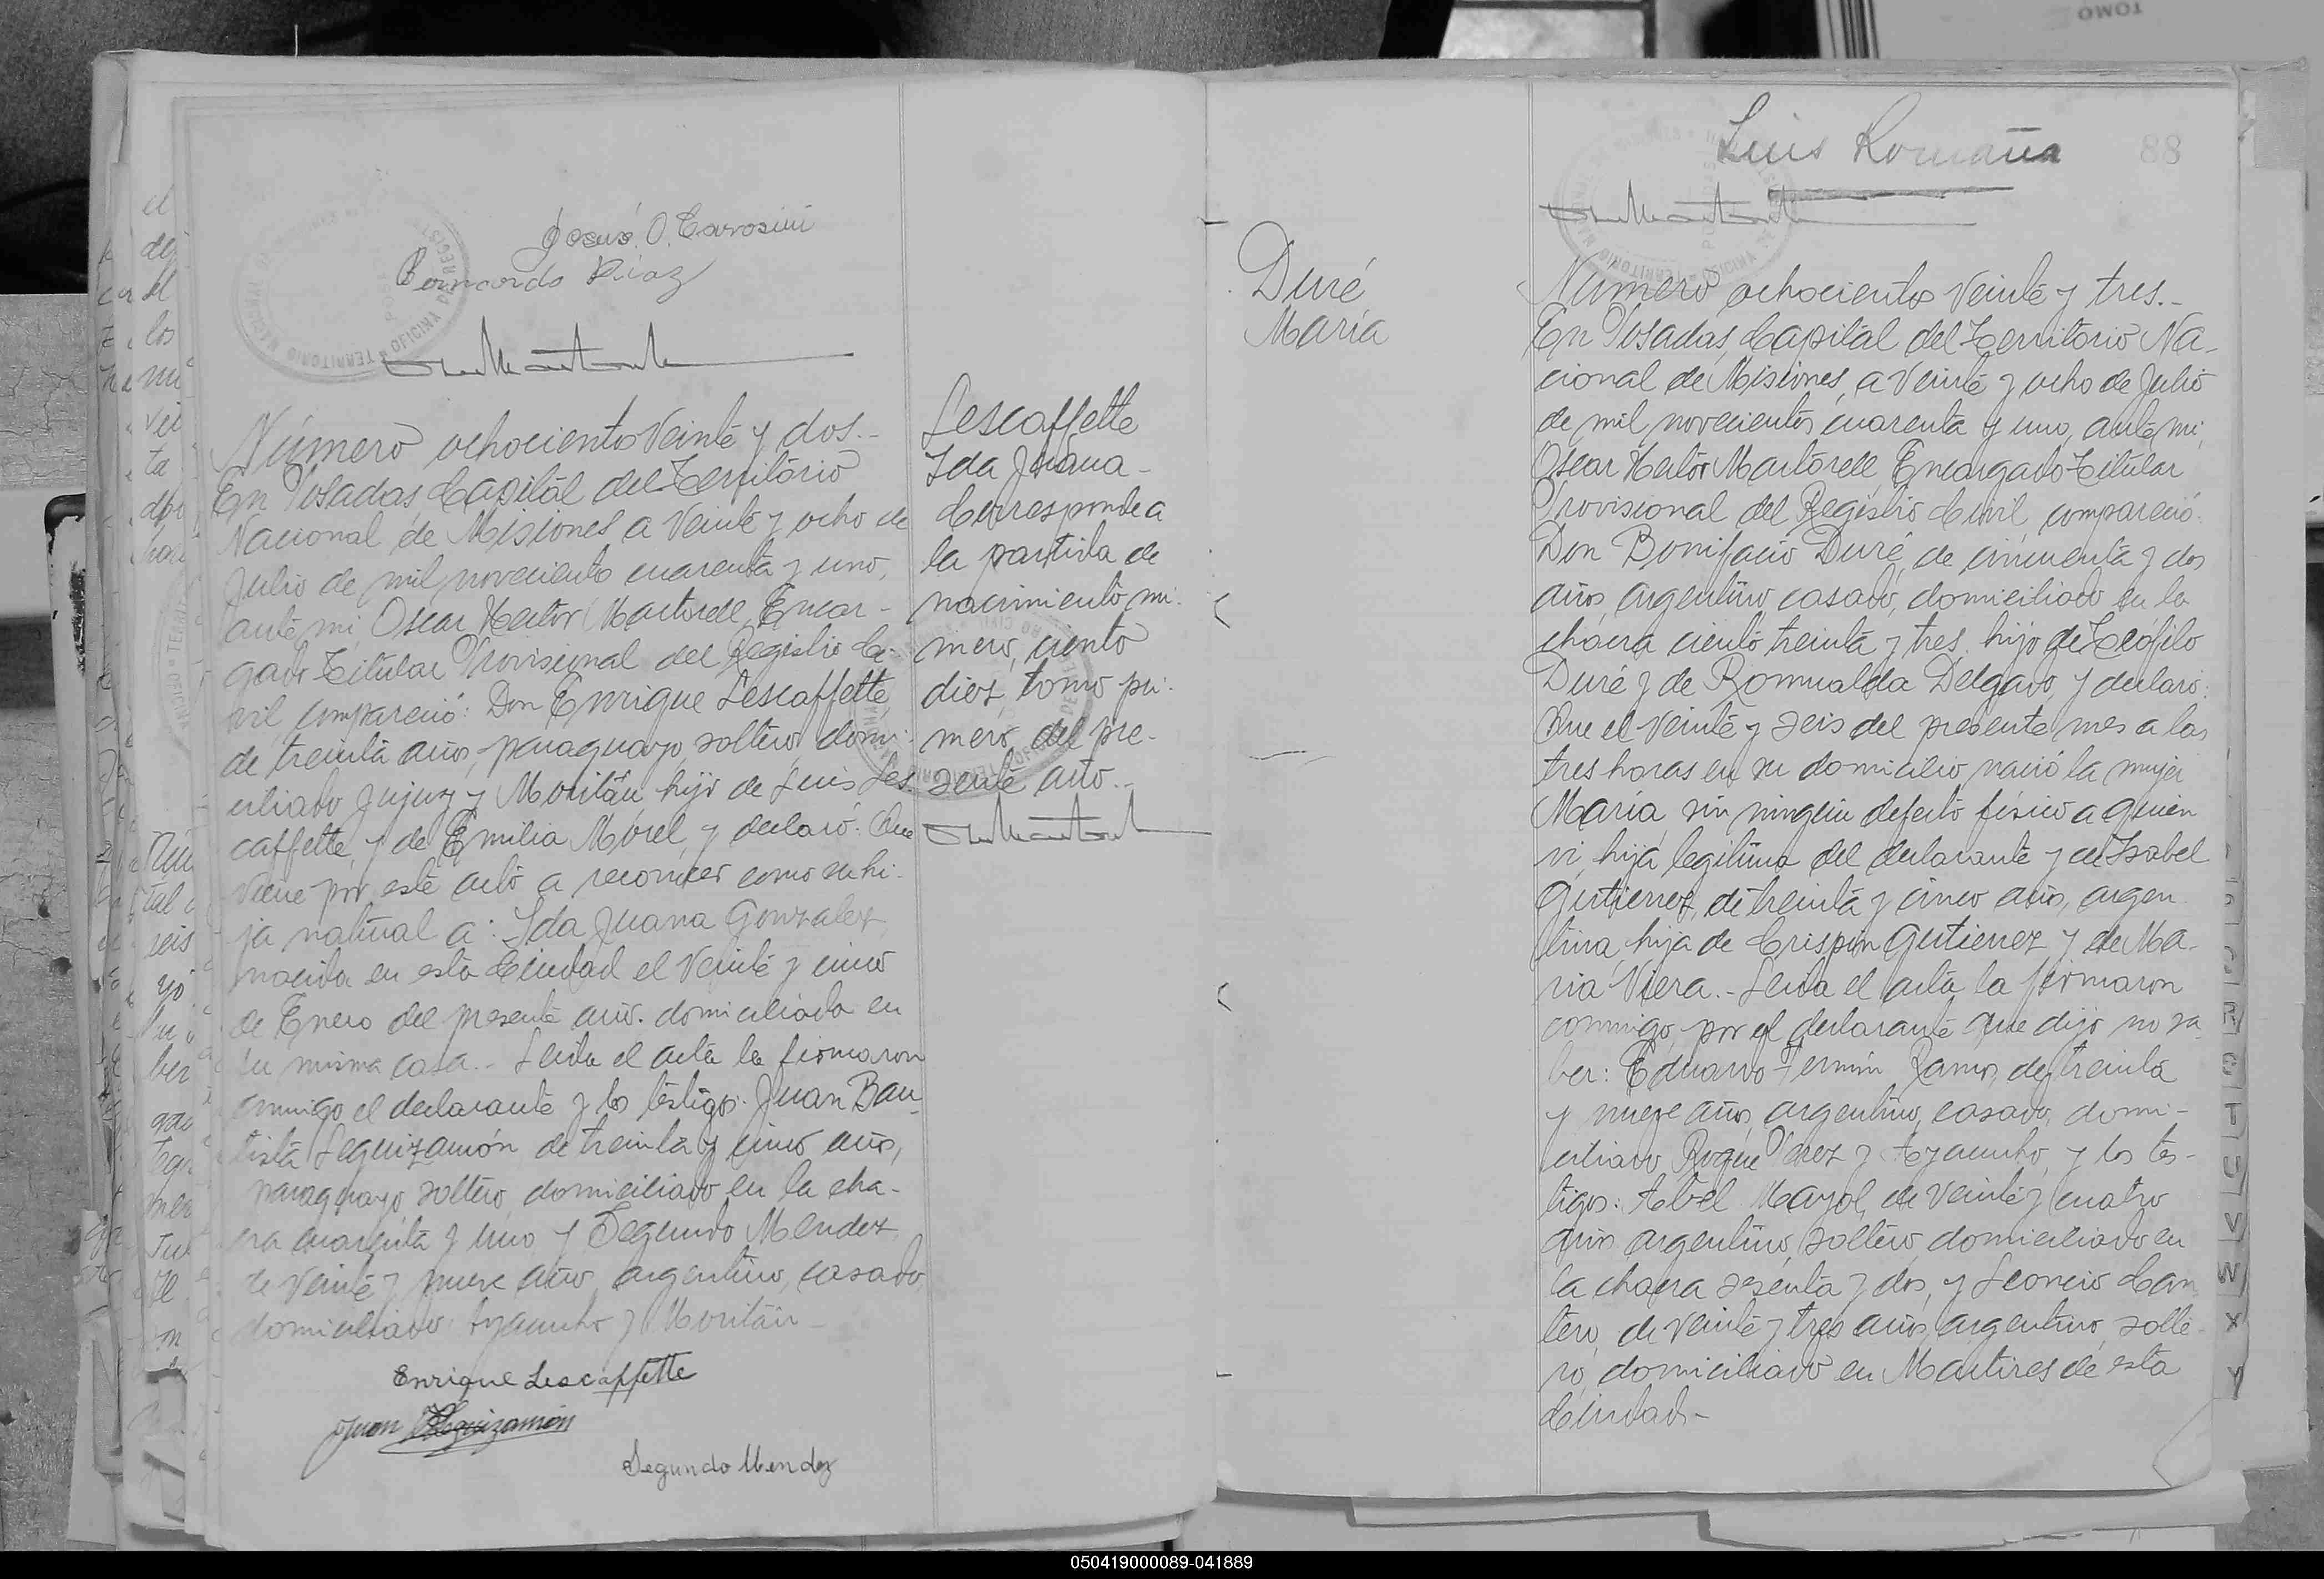 Jesús O. Carosini
Bernardo Diaz
Número ochociento Veinte y dos.-
En Posadas Capital del Territorio
Nacional de Misiones a Veinte y ocho de
Julio de mil noveciento cuarenta y uno,
ante mi Oscar Hector Martorell, Encar-
gado Titular Provisional del Registro Ci-
vil, compareció: Don Enrique Lescaffette,
de treinta años, paraguayo, soltero, domi-
ciliado Jujuy y Moritán hijo de Luis Les-
caffette, y de Emilia Morel, y declaró: Que
viene por este acto a reconocer como su hi-
ja natural a: Ida Juana Gonzalez,
nacida en esta Ciudad el Veinte y cinco
de Enero del presente año. domiciliada en
su misma casa.- Leida el acta la firmaron
conmigo el declarante y los testigos: Juan Bau-
tista Leguizamón de treinta y cinco años,
paraguayo soltero, domiciliado en la cha-
cra cuarenta y uno y Segundo Mendez
de Veinte y nueve año, argentino, casado,
domiciliado Ayacucho y Moritán-
Enrique Lescaffette
Juan Leguizamón
Segundo Mendez
Lescaffette
Ida Juana-
Corresponde a
la partida de
nacimiento nú-
mero, ciento
diez, tomo pri-
mero, del pre-
sente año.-
88
Luis Romaña
Duré
María
Número ochocientos Veinte y tres.-
En Posadas, Capital del Territorio Na-
cional de Misiones, a Veinte y ocho de Julio
de mil novecientos cuarenta y uno, ante mi,
Oscar Hector Martorell, Encargado Titular
Provisional del Registro Civil, compareció:
Don Bonifacio Duré, de cincuenta y dos
años, argentino, casado, domiciliado en la
chacra ciento treinta y tres, hijo de Teófilo
Duré y de Romualda Delgado, y declaró:
Que el Veinte y seis del presente mes a las
tres horas en su domicilio nació la mujer
María, sin ningún defecto físico a quien
vi, hija legitima del declarante y de Isabel
Gutierrez, de treinta y cinco años, argen
tina, hija de Crispin Gutierrez y de Ma-
ria Viera.- Leida el acta la firmaron
conmigo, por el declarante que dijo no sa
ber: Eduardo Fermin Ramos, de treinta
y nueve años, argentino, casado, domi-
ciliado Roque Perez y Ayacucho, y los tes-
tigos: Abel Mayol, de Veinte y cuatro
años argentino, soltero domiciliado en
la chacra sesenta y dos, y Leoncio Can
tero, de Veinte y tres años, argentino, solte-
ro, domiciliado en Martires de esta
Ciudad.-
R
T
U
V
W
X
Y
TOMO
050419000089-041889